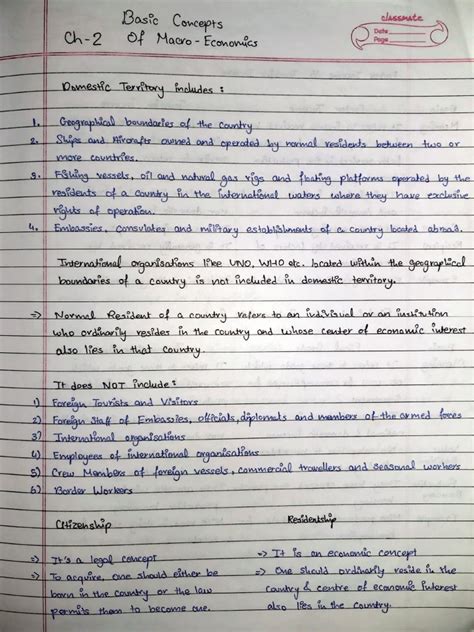 Basic Concepts
Ch-2 Of Macro-Economics
classmate
Date
Page
Domestic Territory includes :
1. Geographical boundaries of the country
2. Ships and Aircrafts owned and operated by normal residents between two or
more countries.
3. Fishing vessels, oil and natural gas rigs and floating platforms operated by the
residents of a country in the international waters where they have exclusive
rights of operation.
4. Embassies, consulates and military establishments of a country located abroad.
International organisations like UNO, WHO etc. located within the geographical
boundaries of a country is not included in domestic territory.
=> Normal Resident of a country refers to an individual or an institution
who ordinarily resides in the country and whose center of economic interest
also lies in that country.
It does NOT include :
1) Foreign Tourists and Visitors
2) Foreign Staff of Embassies, officials, diplomats and members of the armed forces
3) International organisations
4) Employees of international organisations
5) Crew Members of foreign vessels, commercial travellers and seasonal workers
6) Border Workers
Citizenship
=> It's a legal concept
=> To acquire, one should either be
born in the country or the law
permits them to become one.
Residentship
=> It is an economic concept
=> One should ordinarily reside in the
country & centre of economic interest
also lies in the country.